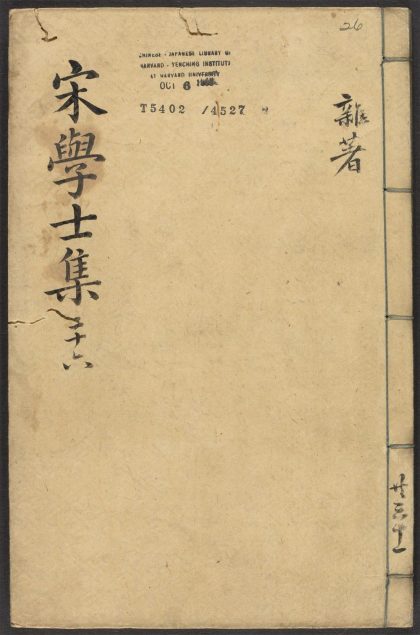 26
雜著
宋學士集 二十六
CHINESE - JAPANESE LIBRARY OF
HARVARD - YENCHING INSTITUTE
AT HARVARD UNIVERSITY
OCT 6
T5402 /4527